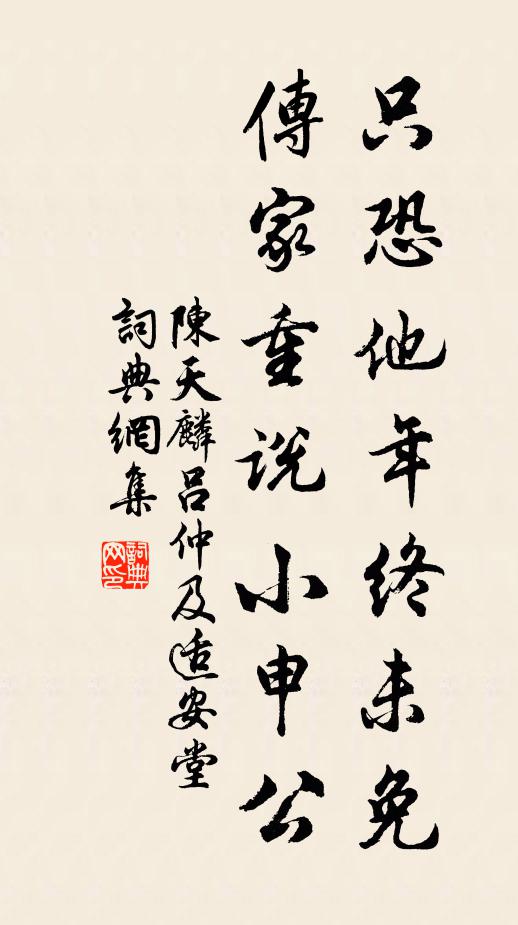 只恐他年終未免
傳家重説小申公
陳天麟呂仲及适安堂
詞典網集
詞典网印